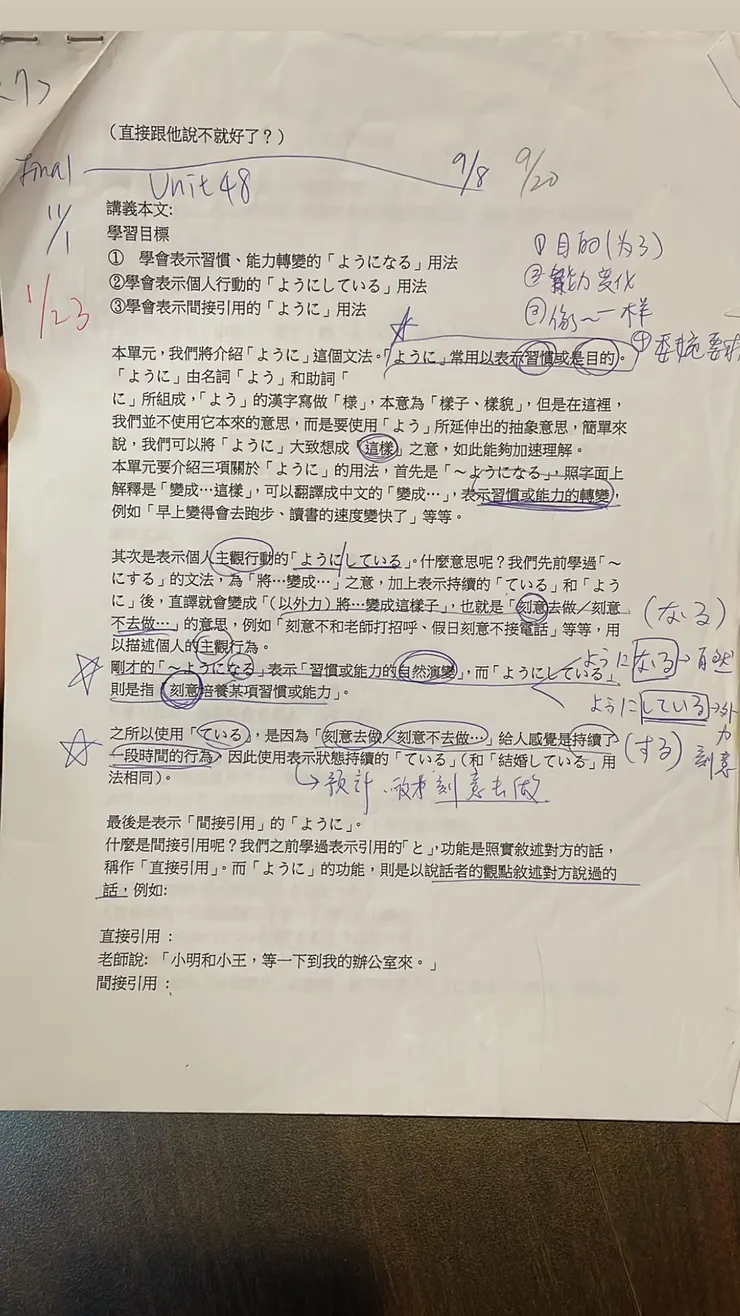 <7>
(直接跟他說不就好了?)
Final
Unit 48
9/8 9/20
11/1
1/23
講義本文:
學習目標
① 學會表示習慣、能力轉變的「ようになる」用法
②學會表示個人行動的「ようにしている」用法
③學會表示間接引用的「ように」用法
①目的(为了)
②能力变化
③像~一样
④委婉要求
本單元,我們將介紹「ように」這個文法。「ように」常用以表示習慣或是目的。
「ように」由名詞「よう」和助詞「
に」所組成,「よう」的漢字寫做「様」,本意為「樣子、樣貌」,但是在這裡,
我們並不使用它本來的意思,而是要使用「よう」所延伸出的抽象意思,簡單來
說,我們可以將「ように」大致想成「這樣」之意,如此能夠加速理解。
本單元要介紹三項關於「ように」的用法,首先是「~ようになる」,照字面上
解釋是「變成…這樣」,可以翻譯成中文的「變成…」,表示習慣或能力的轉變,
例如「早上變得會去跑步、讀書的速度變快了」等等。
其次是表示個人主觀行動的「ようにしている」。什麼意思呢?我們先前學過「~
にする」的文法,為「將…變成…」之意,加上表示持續的「ている」和「よう
に」後,直譯就會變成「(以外力)將…變成這樣子」,也就是「刻意去做/刻意
不去做…」的意思,例如「刻意不和老師打招呼、假日刻意不接電話」等等,用
以描述個人的主觀行為。
剛才的「~ようになる」表示「習慣或能力的自然演變」,而「ようにしている」
則是指「刻意培養某項習慣或能力」。
(なる)
ようになる→自然
ようにしている→外力
刻意
(する)
之所以使用「ている」,是因為「刻意去做/刻意不去做…」給人感覺是持續了
一段時間的行為,因此使用表示狀態持續的「ている」(和「結婚している」用
法相同)。
↳預計、刻意去做
最後是表示「間接引用」的「ように」。
什麼是間接引用呢?我們之前學過表示引用的「と」,功能是照實敘述對方的話,
稱作「直接引用」。而「ように」的功能,則是以說話者的觀點敘述對方說過的
話,例如:
直接引用:
老師說:「小明和小王,等一下到我的辦公室來。」
間接引用: